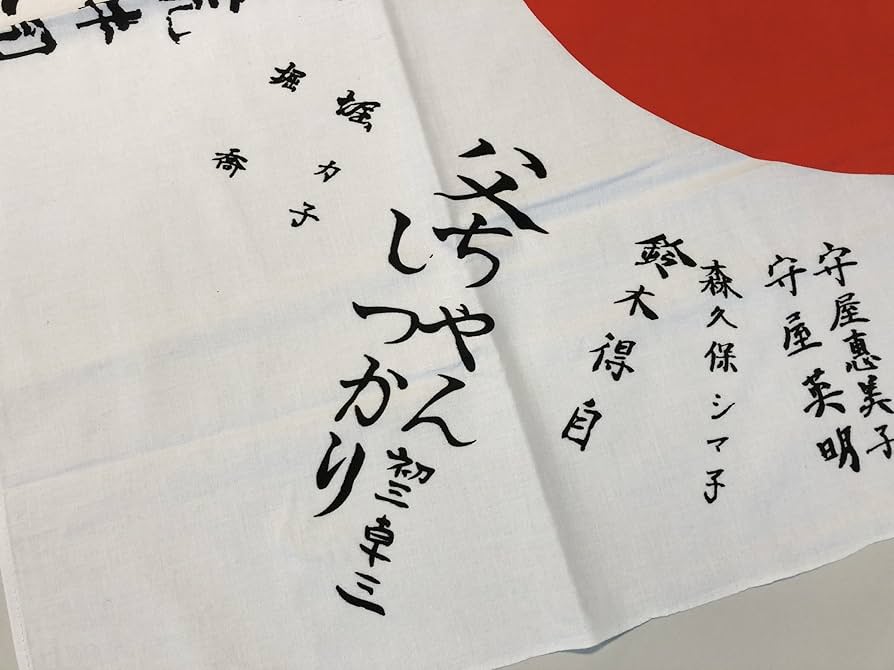 守屋惠美子
守屋英明
森久保シマ子
鈴木得自
父ちやん
しつかり
卓三
堀カ子
堀喬